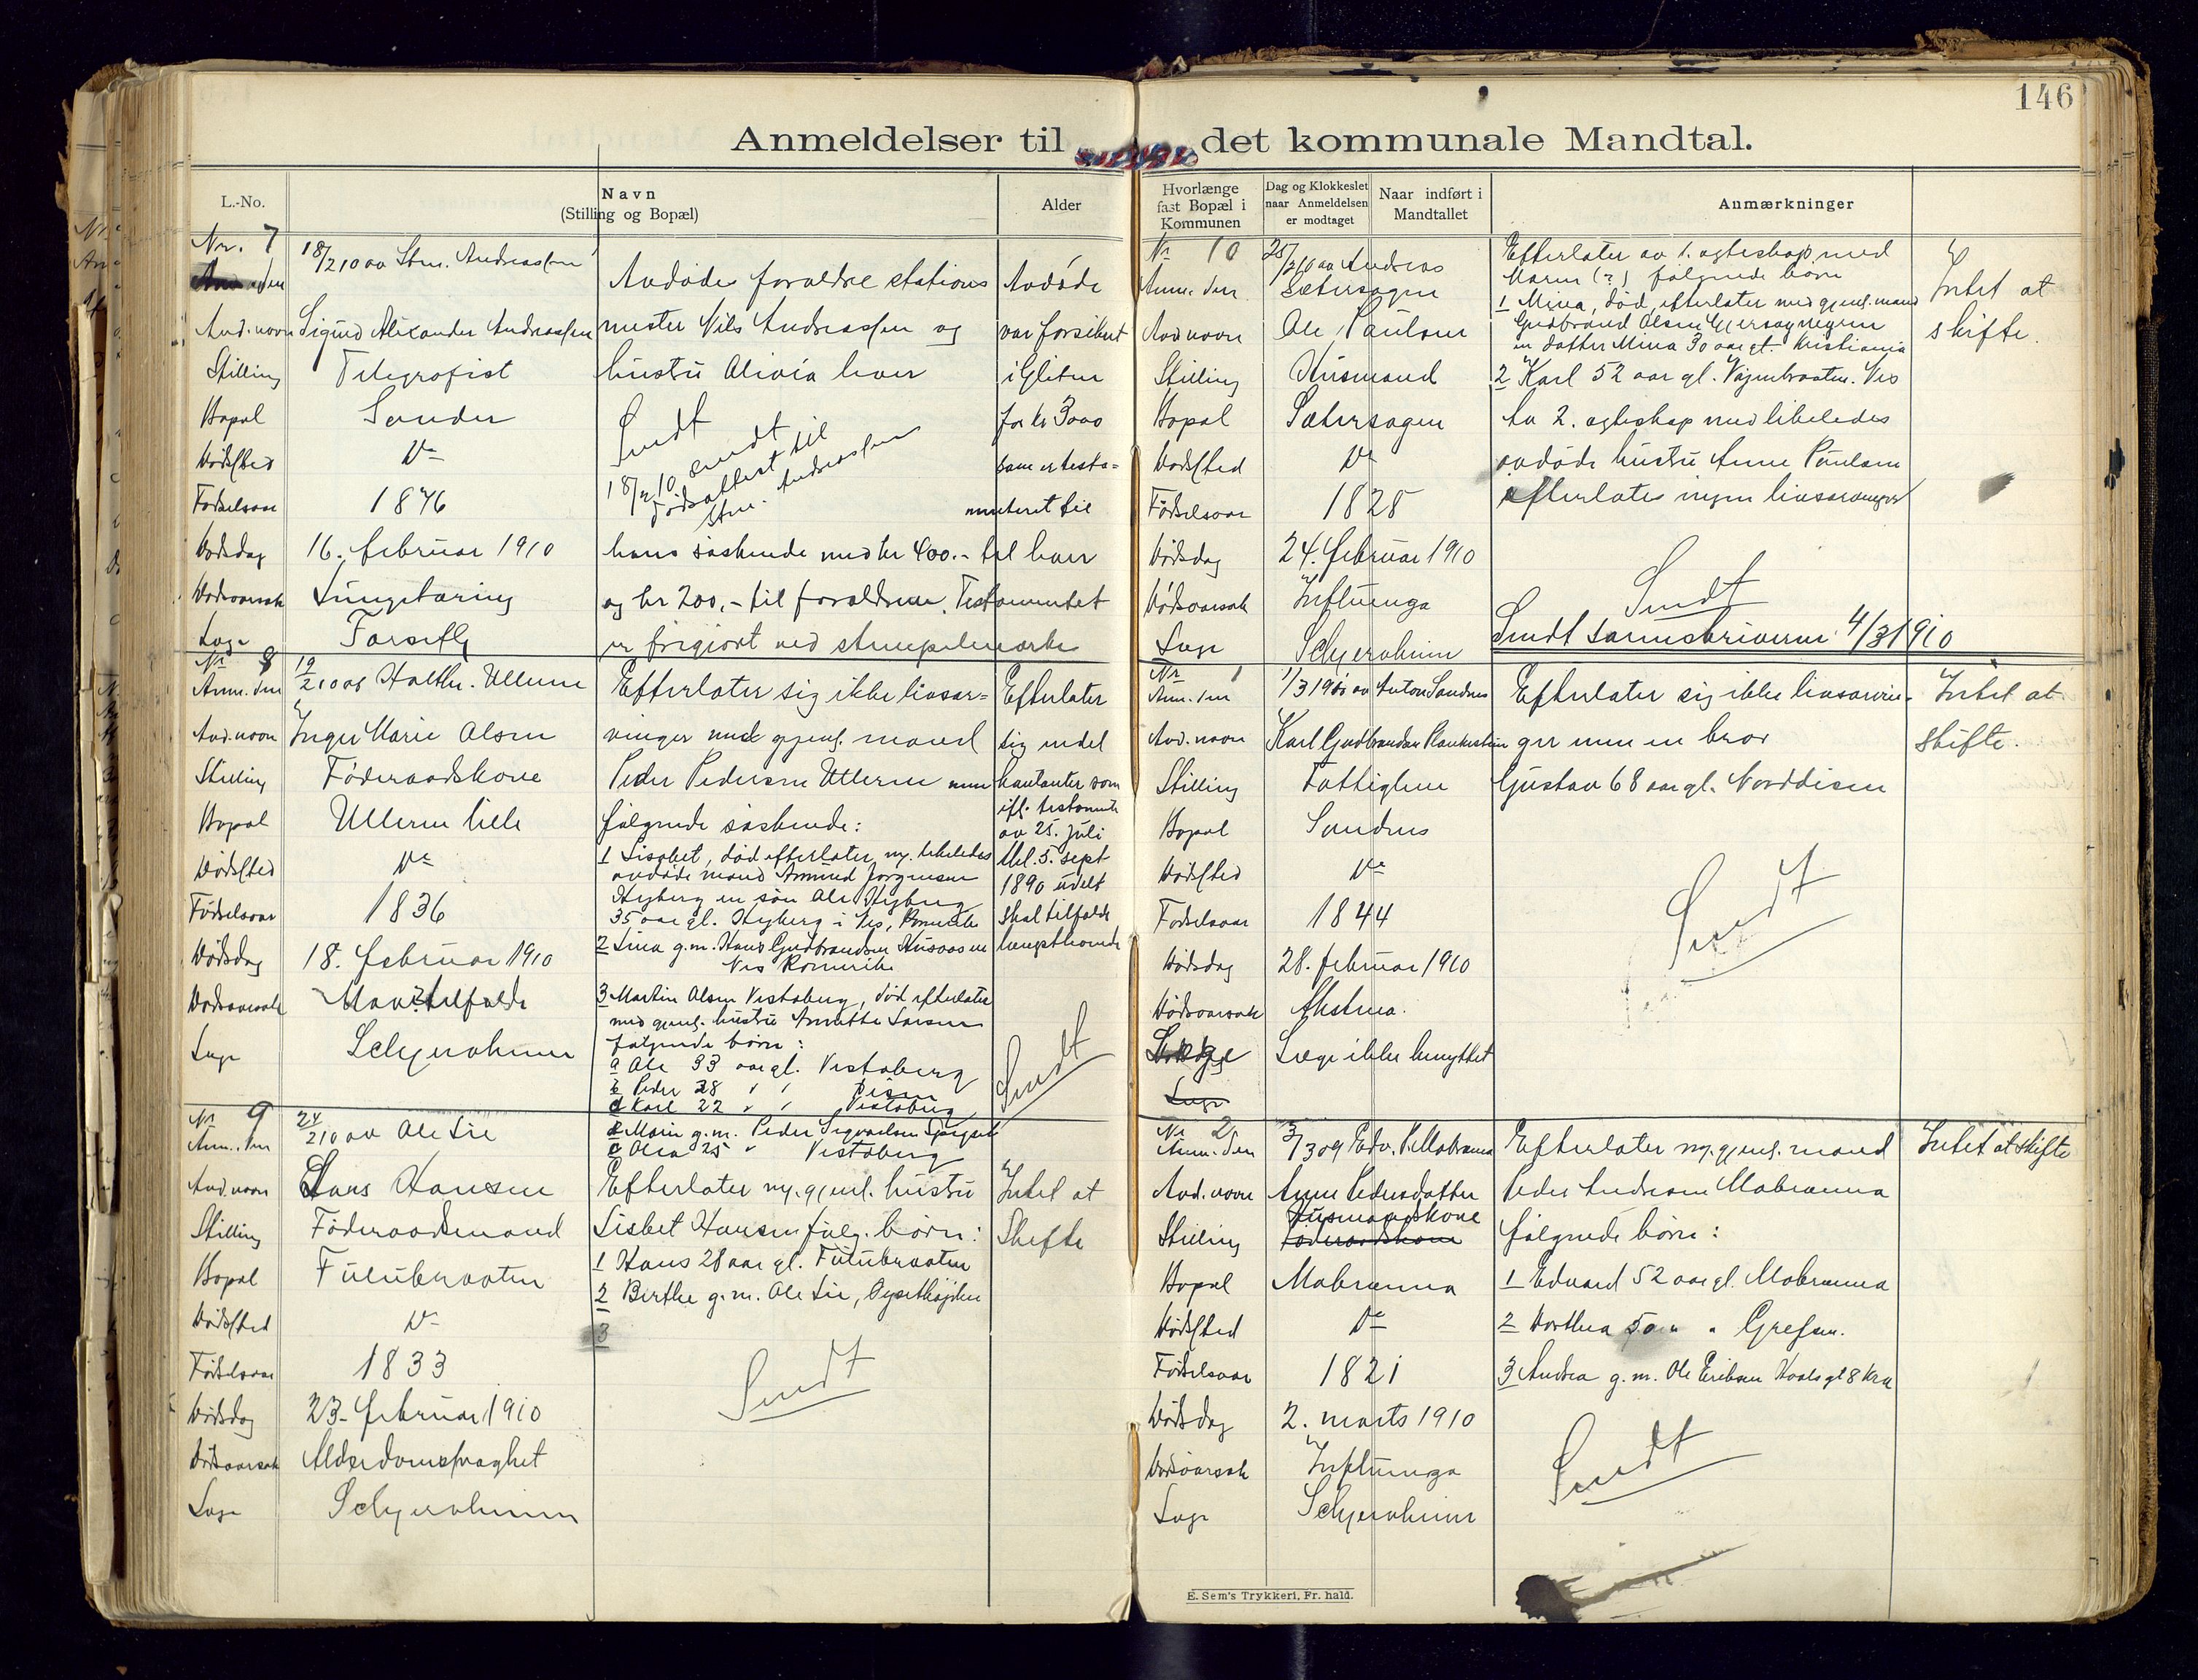 146
Anmeldelser til det kommunale Mandtal.
L.-No.
Navn
(Stilling og Bopæl)
Alder
Hvorlænge
fast Bopæl i
Kommunen
Dag og Klokkeslet
naar Anmeldelsen
er modtaget
Naar indført i
Mandtallet
Anmærkninger
Nr. 7
18/2 10 av Stm. Andreassen
Avd. navn Sigurd Alexander Andreassen
Stilling Telegrafist
Bopæl Sander
Dødssted Do
Fødselsaar 1876
Dødsdag 16. februar 1910
Dødsaarsak Lungetæring
Læge Farseth
Avdødes forældre stations
mester Nils Andreassen og
hustru Olivia hver
Sendt
18/2 10 sendt
dødsattest til
Stm. Andreassen
hans søskende med kr 400.- til hver
og kr 200,- til forældrene. Testamentet
er frigjort ved stempelmerke
Avdøde
var forsikret
i Gjitun
for kr 3000
som er testa-
menteret til
Nr 8
Anm. den 19/2 10 av Halthr. Ullern
Avd. navn Inger Marie Olsen
Stilling Føderaadskone
Bopæl Ullern lille
Dødssted Do
Fødselsaar 1836
Dødsdag 18. februar 1910
Dødsaarsak Mavetilfælde
Læge Schjervheim
Efterlater sig ikke livsar-
vinger med gjenl. mand
Peder Pedersen Ullern men
følgende søskende:
1 Lisabet, død efterlater m. likeledes
avdøde mand Amund Jørgensen
Hyberg en søn Ole Hyberg
35 aar gl. Hyberg i Nes, Romerike
2 Lina g.m. Hans Gudbrandsen Husaasen
Nes Romerike
3 Martin Olsen Vestaberg, død efterlater
med gjenl. hustru Annette Larsen
følgende børn:
a Ole 33 aar gl. Vestaberg
b Peder 28 " " Disen
c Karl 22 " " Vestaberg
d Marie g.m. Peder Sigvartsen
e Olea 25 " Vestaberg
Efterlater
sig endel
kontanter som
ifl. testamente
av 25. juli
thl. 5. sept
1890 udelt
skal tilfalde
længstlevende
Sendt
Nr 9
Anm. den 24/2 10 av Ole Lie
Avd. navn Hans Hansen
Stilling Føderaadsmand
Bopæl Fulubraaten
Dødssted Do
Fødselsaar 1833
Dødsdag 23. februar 1910
Dødsaarsak Alderdomssvaghet
Læge Schjervheim
Efterlater m. gjenl. hustru
Lisbet Hansen følg. børn:
1 Hans 28 aar gl. Fulubraaten
2 Berthe g.m. Ole Lie, Dysethøiden
3
Sendt
Intet at
Skifte
Nr 10
Anm. den 25/2 10 av Andreas
Sætersagen
Avd. navn Ole Paulsen
Stilling Husmand
Bopæl Sætersagen
Dødssted Do
Fødselsaar 1828
Dødsdag 24. februar 1910
Dødsaarsak Influenza
Læge Schjervheim
Efterlater av 1. egteskap med
Maren (?) følgende børn
1 Mina, død, efterlater med gjenl. mand
Gudbrand Olsen
en datter Mina 30 aar gl. Kristiania
2 Karl 52 aar gl. Vajenbraaten. Nes
Av 2. egteskap med likeledes
avdøde hustru Anne Paulsen
efterlates ingen livsarvinger
Sendt
Sendt sorenskriveren 4/3 1910
Intet at
skifte.
Nr 1
Anm. den 1/3 1910 av Anton Sandnes
Avd. navn Karl Gudbrandsen
Stilling Fattiglem
Bopæl Sandnes
Dødssted Do
Fødselsaar 1844
Dødsdag 28. februar 1910
Dødsaarsak Astma.
Læge Læge ikke benyttet
Læge
Efterlater sig ikke livsarvin-
ger men en bror
Gustav 68 aar gl. Norddisen
Sendt
Intet at
skifte.
Nr 2
Anm. den 3/3 09 Edv. P. Mobrænna
Avd. navn Anne Pedersdatter
Husmandskone
Stilling Føderaadskone
Bopæl Mobrænna
Dødssted Do
Fødselsaar 1821
Dødsdag 2. marts 1910
Dødsaarsak Influenza
Læge Schjervheim
Efterlater m. gjenl. mand
Peder Andersen Mobrænna
følgende børn:
1 Edvard 52 aar gl. Mobrænna
2 Dorthea 50 " " Grefsen.
3 Andrea g.m. Ole Eriksen
Sendt
Intet at skifte
E. Sem's Trykkeri, Fr. hald.